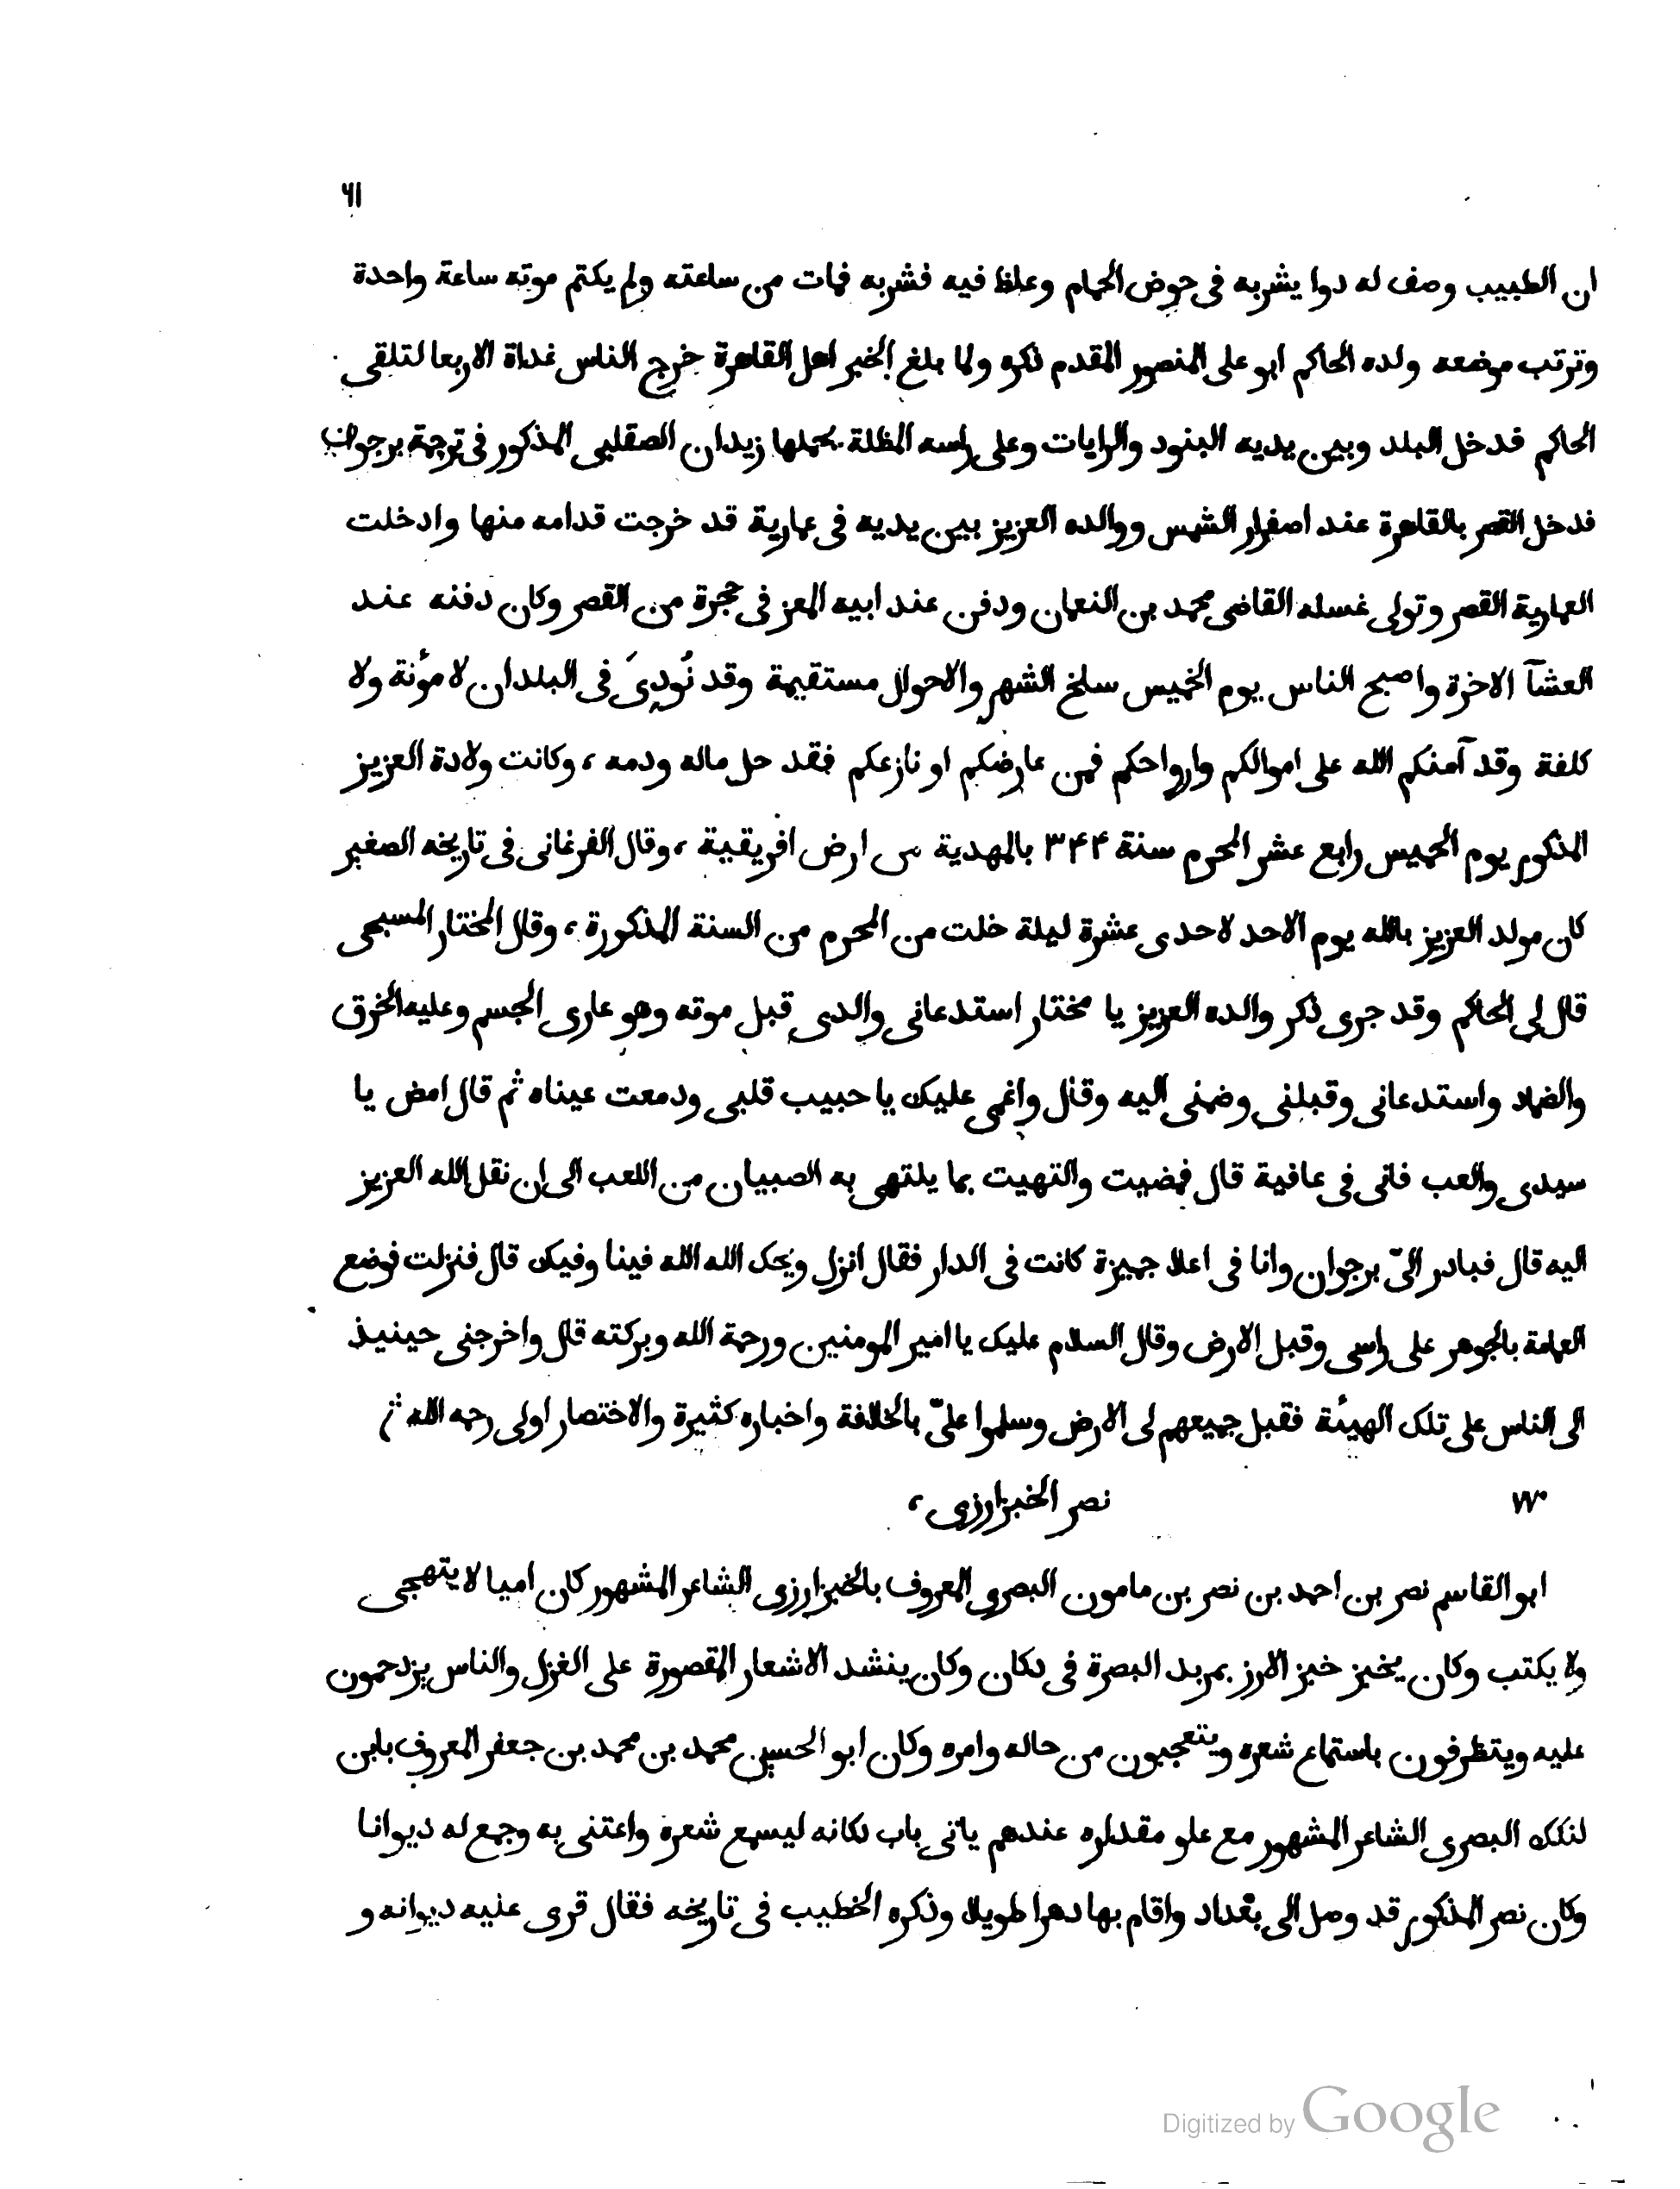 ٦١
ان الطبيب وصف له دوا يشربه فى حوض الحمام وغلظ فيه فشربه فمات من ساعته ولم يكتم موته ساعة واحدة
وترتب موضعه ولده الحاكم ابو على المنصور المقدم ذكره ولما بلغ الخبر اهل القاهرة خرج الناس غداة الاربعا لتلقى
الحاكم فدخل البلد وبين يديه البنود والرايات وعلى راسه المظلة يحملها زيدان الصقلبى المذكور فى ترجمة برجوان
فدخل القصر بالقاهرة عند اصفرار الشمس ووالده العزيز بين يديه فى عمارية قد خرجت قدامه منها وادخلت
العمارية القصر وتولى غسله القاضى محمد بن النعمان ودفن عند ابيه المعز فى حجرة من القصر وكان دفنه عند
العشآ الاخرة واصبح الناس يوم الخميس سلخ الشهر والاحوال مستقيمة وقد نُودِىَ فى البلدان لا مؤنة ولا
كلفة وقد آمنكم الله على اموالكم وارواحكم فمن عارضكم او نازعكم فقد حل ماله ودمه ، وكانت ولادة العزيز
المذكور يوم الخميس رابع عشر المحرم سنة ٣٤٤ بالمهدية من ارض افريقية ، وقال الفرغانى فى تاريخه الصغير
كان مولد العزيز بالله يوم الاحد لاحدى عشرة ليلة خلت من المحرم من السنة المذكورة ، وقال المختار المسبحى
قال لى الحاكم وقد جرى ذكر والده العزيز يا مختار استدعانى والدى قبل موته وهو عارى الجسم وعليه الخرق
والضماد واستدعانى وقبلنى وضمنى اليه وقال واغمى عليك يا حبيب قلبى ودمعت عيناه ثم قال امض يا
سيدى والعب فانى فى عافية قال فمضيت والتهيت بما يلتهى به الصبيان من اللعب الى ان نقل الله العزيز
اليه قال فبادر الىّ برجوان وانا فى اعلا جميزة كانت فى الدار فقال انزل ويحك الله الله فينا وفيك قال فنزلت فوضع
العمامة بالجوهر على راسى وقبل الارض وقال السلام عليك يا امير المومنين ورحمة الله وبركته قال واخرجنى حينيذ
الى الناس على تلك الهيئة فقبل جميعهم لى الارض وسلموا علىّ بالخلافة واخباره كثيرة والاختصار اولى رحمه الله
نصر الخبزارزى ،
ابو القاسم نصر بن احمد بن نصر بن مامون البصرى المعروف بالخبزارزى الشاعر المشهور كان اميا لا يتهجى
ولا يكتب وكان يخبز خبز الارز بمربد البصرة فى دكان وكان ينشد الاشعار المقصورة على الغزل والناس يزدحمون
عليه ويتظرفون باستماع شعره ويتعجبون من حاله وامره وكان ابو الحسين محمد بن محمد بن جعفر المعروف بابن
لنكك البصرى الشاعر المشهور مع علو مقداره عندهم ياتى باب دكانه ليسمع شعره واعتنى به وجمع له ديوانا
وكان نصر المذكور قد وصل الى بغداد واقام بها دهرا طويلا وذكره الخطيب فى تاريخه فقال قرى عليه ديوانه و
Digitized by Google